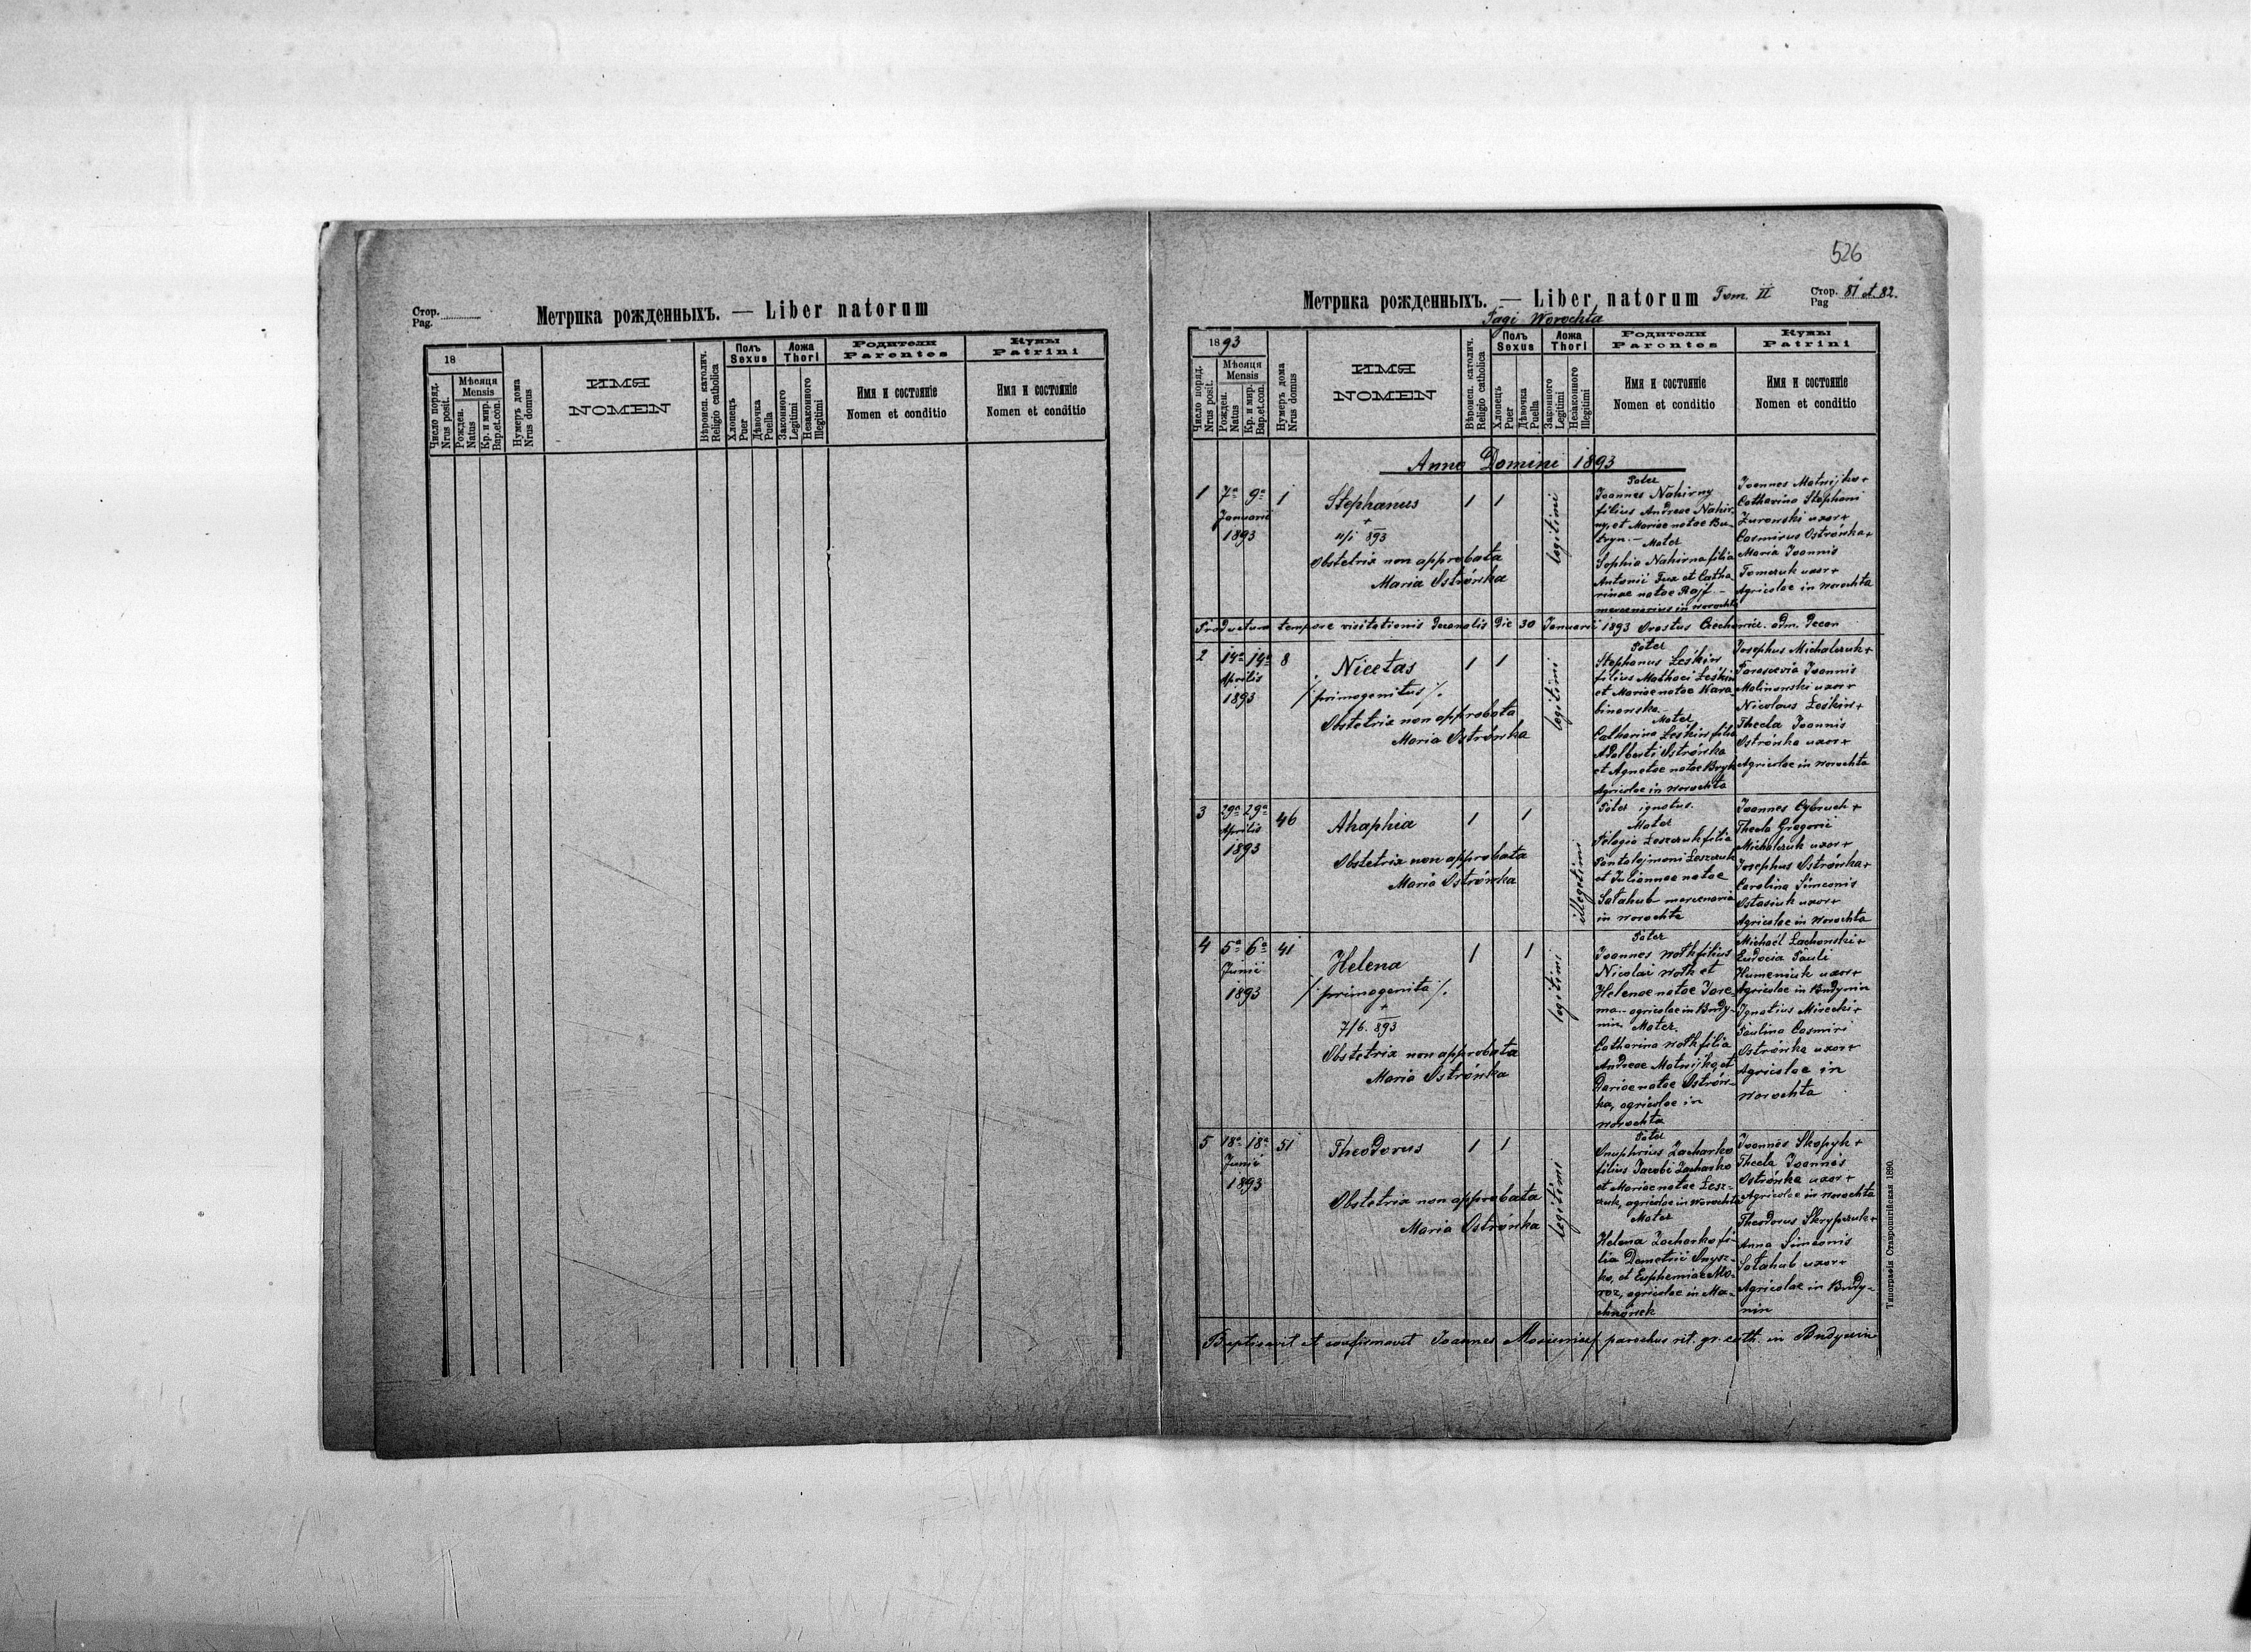 Стор.
Pag.
Метрика рожденныхъ. — Liber natorum
18
Число поряд.
Nrus posit.
Мѣсяця
Mensis
Рожден.
Natus
Кр. и мир.
Bap.et.con.
Нумеръ дома
Nrus domus
ИМЯ
NOMEN
Вѣроисп. католич.
Religio catholica
Полъ
Sexus
Хлопець
Puer
Дѣвочка
Puella
Ложа
Thori
Законного
Legitimi
Незаконного
Illegitimi
Родители
Parentes
Имя и состояніе
Nomen et conditio
Кумы
Patrini
Имя и состояніе
Nomen et conditio
526
Метрика рожденныхъ. — Liber natorum Tom. II
Стор. 81 et 82.
Pag
Pagi Worochta
1893
Число поряд.
Nrus posit.
Мѣсяця
Mensis
Рожден.
Natus
Кр. и мир.
Bap.et.con.
Нумеръ дома
Nrus domus
ИМЯ
NOMEN
Вѣроисп. католич.
Religio catholica
Полъ
Sexus
Хлопець
Puer
Дѣвочка
Puella
Ложа
Thori
Законного
Legitimi
Незаконного
Illegitimi
Родители
Parentes
Имя и состояніе
Nomen et conditio
Кумы
Patrini
Имя и состояніе
Nomen et conditio
Anno Domini 1893
1 7a 9a 1
Januarii
1893
Stephanus
+
11/1 893
Obstetrix non approbata
Maria Ostrówka
1 1
legitimi
Pater
Joannes Nahirny
filius Andreae Nahir-
ny, et Mariae natae Bu-
tryn. – Mater
Sophia Nahirna filia
Antonii Fux et Catha
rinae natae Rajf –
mercenarius in Worochta
Joannes Matwijko +
Catharina Stephani
Żurowski uxor +
Cosmirus Ostrówka +
Maria Joannis
Tomczuk uxor +
Agricolae in Worochta
Productum tempore visitationis decanalis die 30 Januarii 1893 adm. Decan
2 14a 14a 8
Aprilis
1893
Nicetas
/primogenitus/.
Obstetrix non approbata
Maria Ostrówka
1 1
legitimi
Pater
Stephanus Leśkiw
filius Mathaei Leśkiw
et Mariae natae Kara-
binowska
Mater
Catharina Leśkiw filia
Adalberti Ostrówka
et Agnetae natae Bryk
Agricolae in Worochta
Josephus Michalczuk +
Parascevia Joannis
Malinowski uxor +
Nicolaus Leśkiw +
Thecla Joannis
Ostrówka uxor +
Agricolae in Worochta
3 29a 29a 46
Aprilis
1893
Ahaphia
Obstetrix non approbata
Maria Ostrówka
1 1
illegitimi
Pater ignotus.
Mater
Pelagia Leszczuk filia
Pantalejmoni Leszczuk
et Juliannae natae
Sołahub mercenaria
in Worochta
Joannes Cybruch +
Thecla Gregorii
Michalczuk uxor +
Josephus Ostrówka +
Carolina Simeonis
Ostasiuk uxor +
Agricolae in Worochta
4 5a 6a 41
Junii
1893
Helena
/primogenita/.
+
7/6. 893
Obstetrix non approbata
Maria Ostrówka
1 1
legitimi
Pater
Joannes Wołk filius
Nicolai Wołk et
Helenae natae Jare-
ma – agricolae in Budy-
nin Mater.
Catharina Wołk filia
Andreae Matwijko, et
Dariae natae Ostrów-
ka, agricolae in
Worochta
Michaël Lachowski +
Eudocia Pauli
Humeniuk uxor +
Agricolae in Budynin
Ignatius Mirecki +
Paulina Casmiri
Ostrówka uxor +
Agricolae in
Worochta
5 18a 18a 51
Junii
1893
Theodorus
Obstetrix non approbata
Maria Ostrówka
1 1
legitimi
Pater
Onuphrius Zacharko
filius Jacobi Zacharko
et Mariae natae Lesz-
czuk, agricolae in Worochta
Mater
Helena Zacharko fi-
lia Demetrii Onysz-
ko, et Euphemiae Mo-
roz, agricolae in Ma-
chnówek
Joannes Skopyk +
Thecla Joannis
Ostrówka uxor +
Agricolae in Worochta
Theodorus Skrypczuk +
Anna Simeonis
Sołahub uxor +
Agricolae in Budy-
nin
Baptisavit et confirmavit Joannes parochus rit. gr. cath. in Budynin
Типографія Ставропигійская 1890.